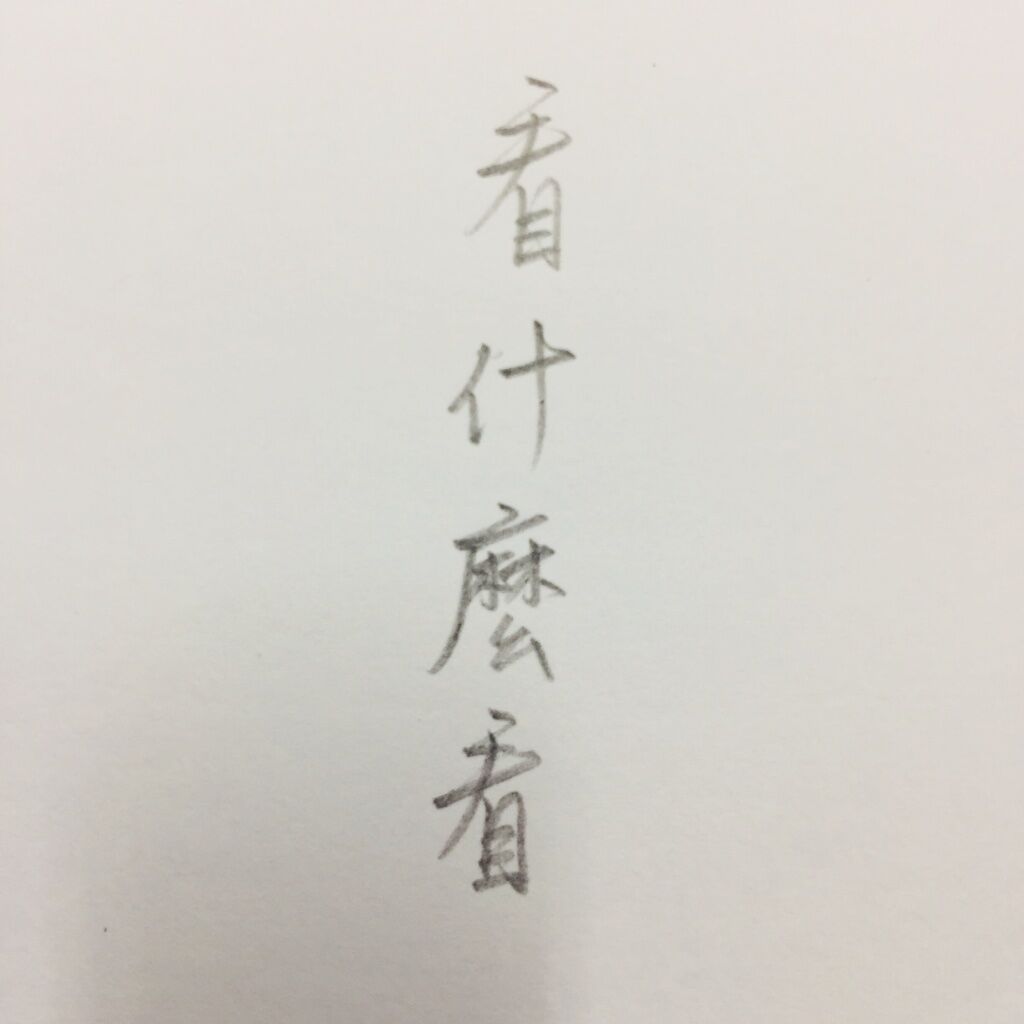 看什麼看